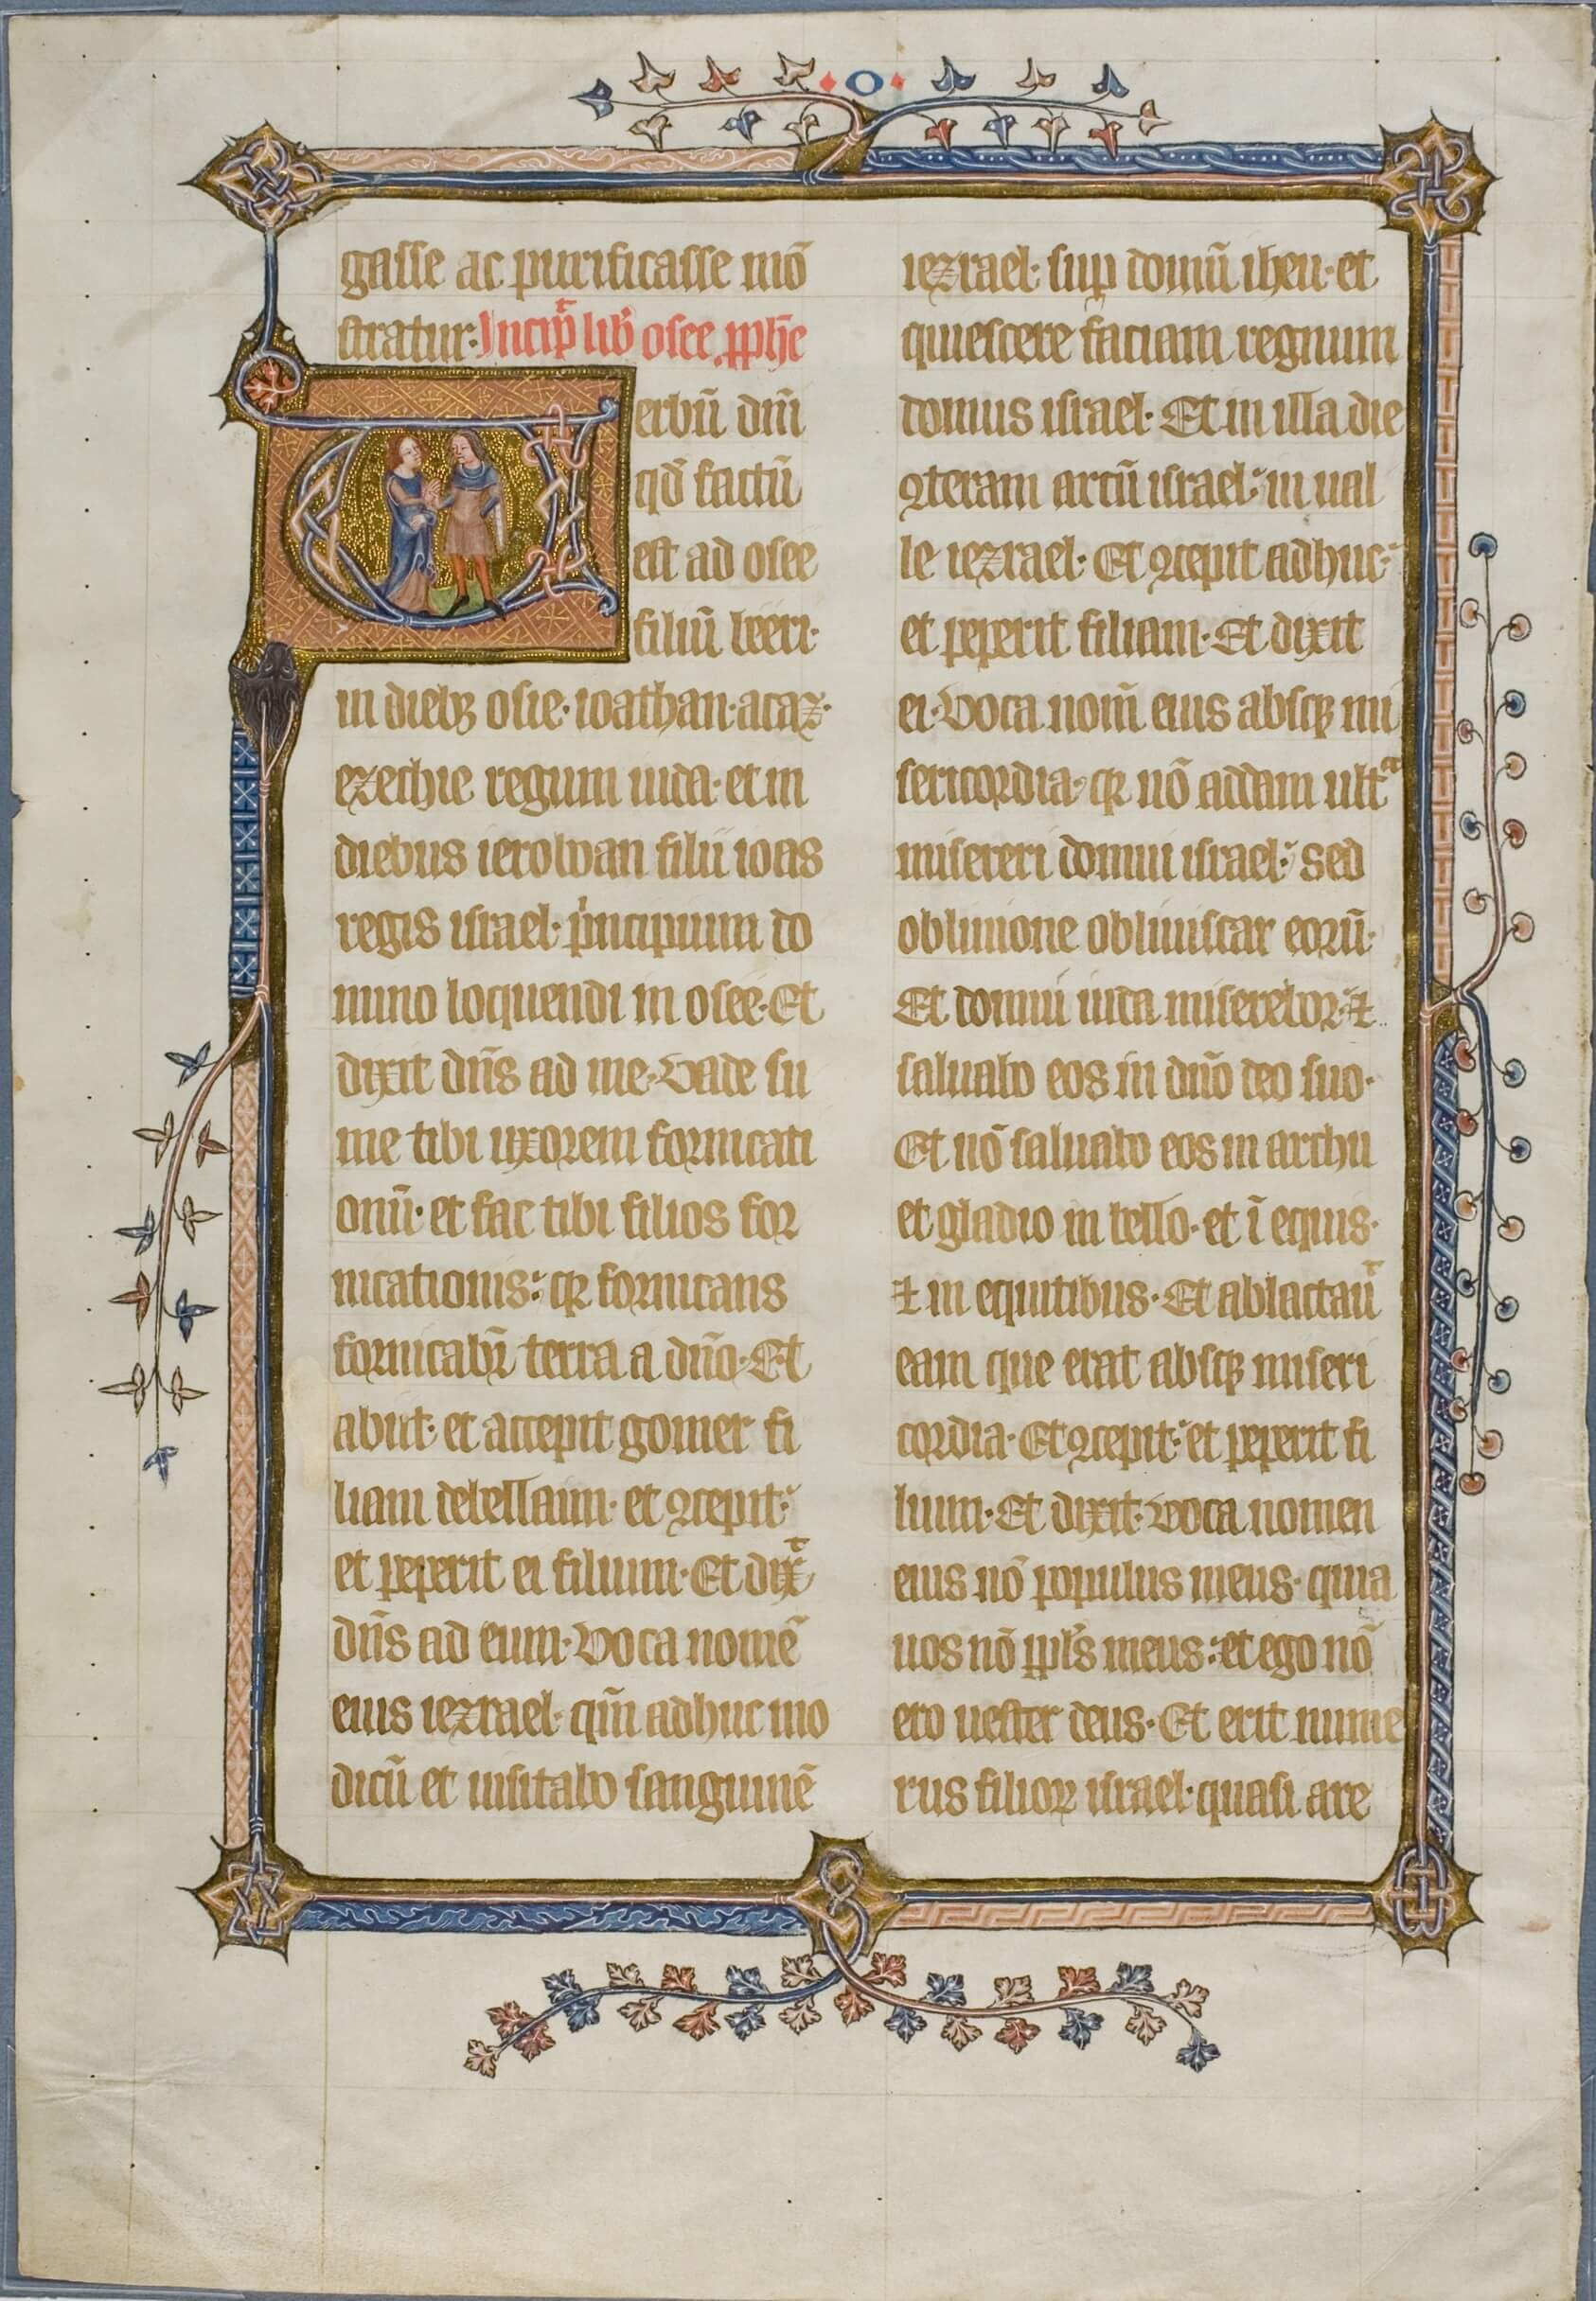 o
gasse ac purificasse mo᷒̄
stratur· Incip̄ᵗ lib̄ osee ꝓph̄e
Verbū dn̄i
qd̄ factū
est ad osee
filiū beeri·
in diebꝫ osie· ioathan· acaz·
ezechie regum iuda· et in
diebus ieroboan filii ioas
regis israel· pⁱncipium do
mino loquendi in osee· Et
dixit dn̄s ad me· Vade su
me tibi uxorem fornicati
onū· et fac tibi filios for
nicationis: qꝛ fornicans
fornicabr̄ terra a dn̄o· Et
abiit· et accepit gomer fi
liam debellaim· et ꝯcepit:
et peperit ei filium· Et dixᵗ
dn̄s ad eum· Voca nomē
eius iezrael· qm̄ adhuc mo
dicū et uisitabo sanguinē
iezrael· suꝑ domū iheu· et
quiescere faciam regnum
domus israel· Et in illa die
ꝯteram arcū israel: in ual
le iezrael· Et ꝯcepit adhuc:
et peperit filiam· Et dixit
ei· Voca nom̄ eius absqꝫ mi
sericordia· qꝛ nō addam ultᵃ
misereri domui israel: sed
obliuione obliuiscar eorū·
Et domui iuda miserebor: ⁊
saluabo eos in dn̄o deo suo·
Et nō saluabo eos in archu
et gladio in bello· et ī equis·
⁊ in equitibus· Et ablactauᵗ
eam que erat absqꝫ miseri
cordia· Et ꝯcepit: et peperit fi
lium· Et dixit· Voca nomen
eius nō populus meus· quia
uos nō pp̄ls meus: et ego nō
ero uester deus· Et erit nume
rus filioꝝ israel· quasi are